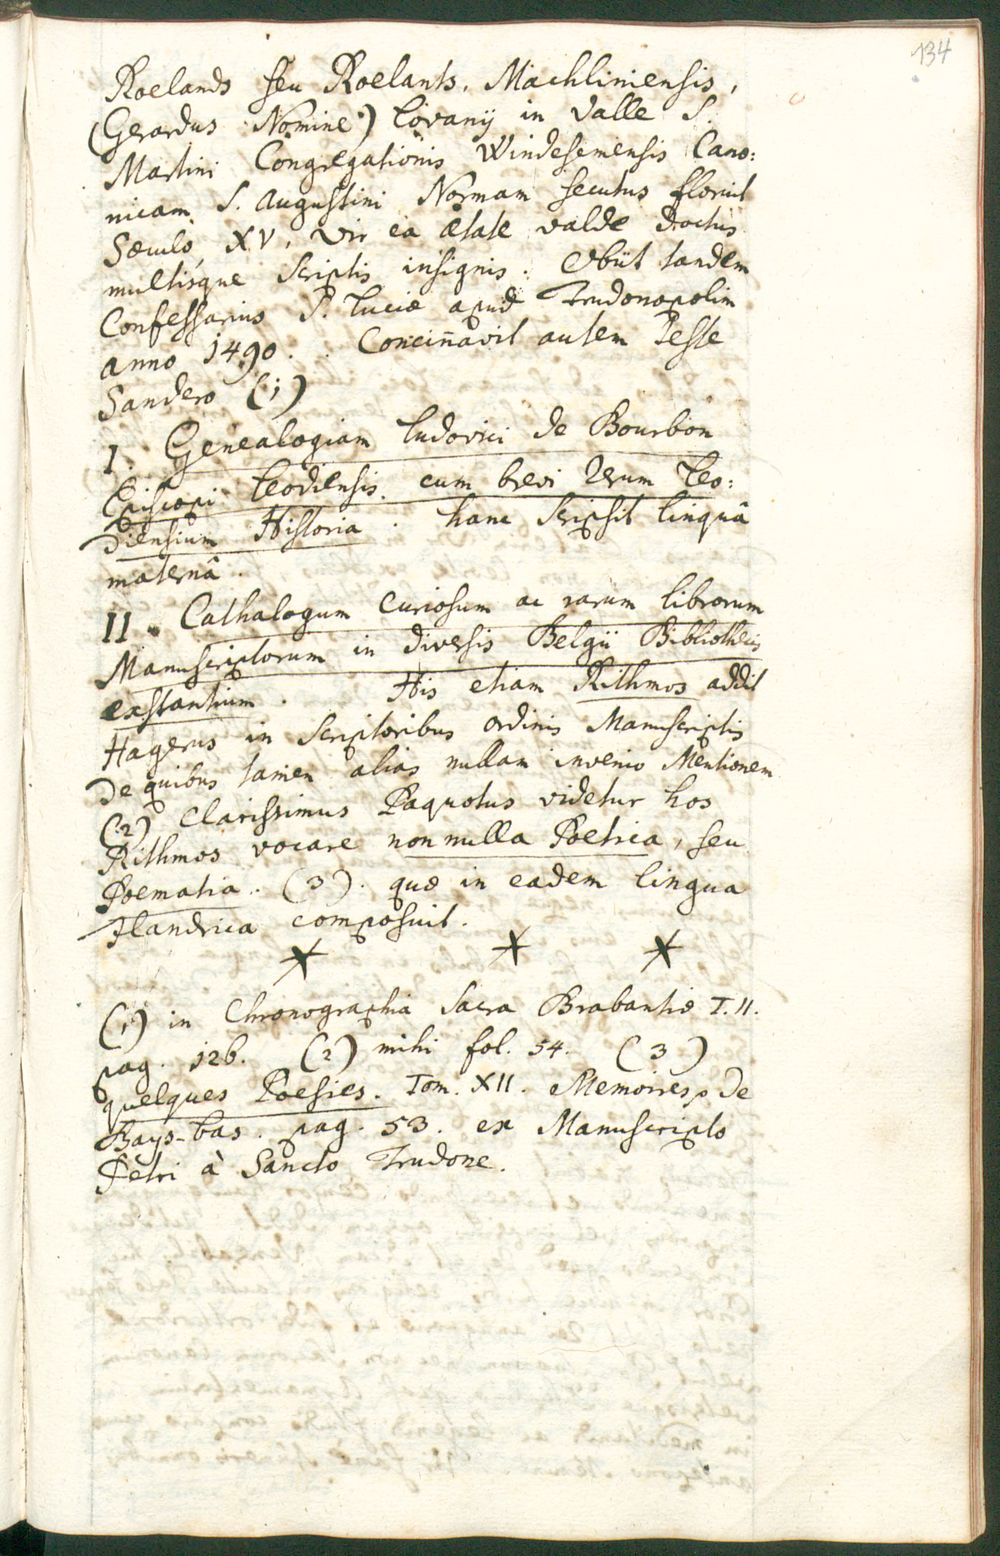 134
Roelands seu Roelants, Machliniensis,
(Gerardus Nomine) Lovanij in Valle S.
Martini Congregationis Windesemensis Cano:
nicam S. Augustini Normam secutus floruit
Sæculo XV, vir eâ ætate valde doctus
multisque scriptis insignis. Obiit tandem
Confessarius S. Luciæ apud Trudonopolim
anno 1490. Concinñavit autem Teste
Sandero (1)
I. Genealogiam Ludovici de Bourbon
Episcopi Leodiensis cum brevi rerum Leo:
diensium Historia. hanc scripsit linquâ
maternâ.
II. Cathalogum curiosum ac rarum librorum
Manuscriptorum in diversis Belgii Bibliothecis
exstantium. His etiam Rithmos addit
Hagerus in scriptoribus ordinis Manuscriptis
de quibus tamen alias nullam invenio Mentionem
(2) Clarissimus Paquotus videtur hos
Rithmos vocare non nulla Poetica, seu
Poematia. (3). quæ in eadem lingua
Flandrica composuit.
(1) in Chronographia Sacra Brabantiæ T. II.
pag. 126. (2) mihi fol. 54. (3)
quelques Poesies. Tom. XII. Memoires de
Bays-bas. pag. 53. ex Manuscripto
Petri à Sancto Trudone.